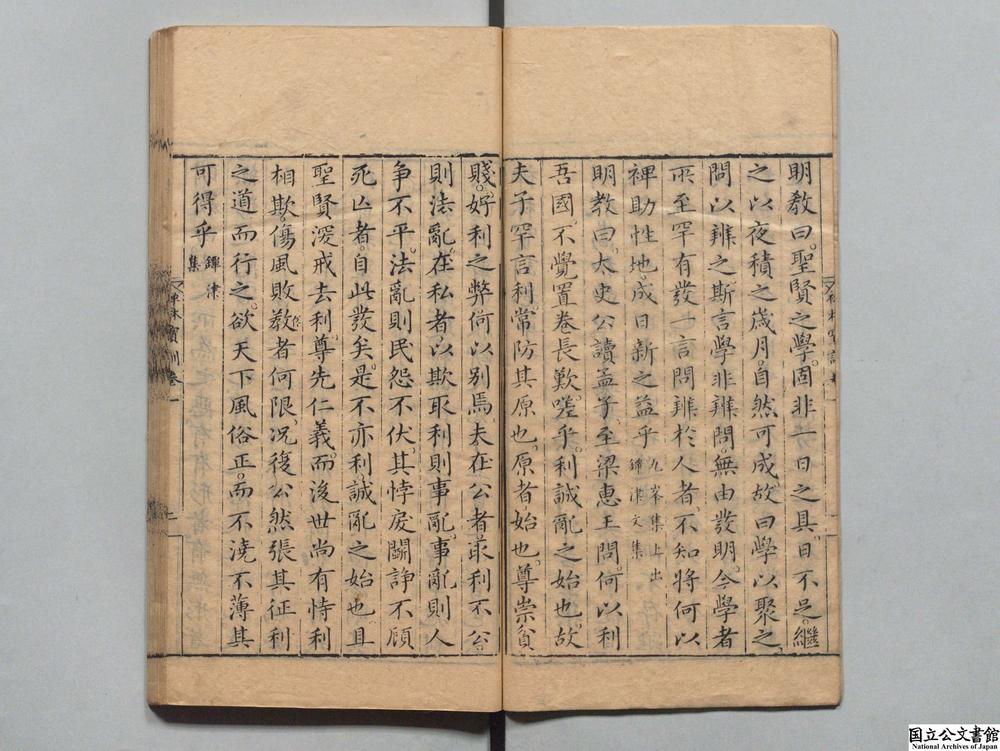 明教曰。聖賢之學。固非一日之具。日不足。繼
之以夜。積之歲月。自然可成。故曰學以聚之。
問以辨之。斯言學非辨問。無由發明。今學者
所至罕有發一言問辨於人者。不知將何以
裨助性地。成日新之益乎 九峯集上出 鐔津文集
明教曰。太史公讀孟子。至梁惠王問。何以利
吾國。不覺置卷長歎。嗟乎。利誠亂之始也。故
夫子罕言利。常防其原也。原者始也。尊崇貧
賤。好利之弊何以別焉。夫在公者取利不公
則法亂。在私者以欺取利則事亂。事亂則人
争不平。法亂則民怨不伏。其悖戾鬭諍。不顧
死亾者。自此發矣。是不亦利誠亂之始也。且
聖賢深戒去利。尊先仁義。而後世尚有恃利
相欺。傷風敗教者何限。況復公然張其征利
之道而行之。欲天下風俗正。而不澆不薄其
可得乎 鐔津集
寶訓 卷一
国立公文書館
National Archives of Japan